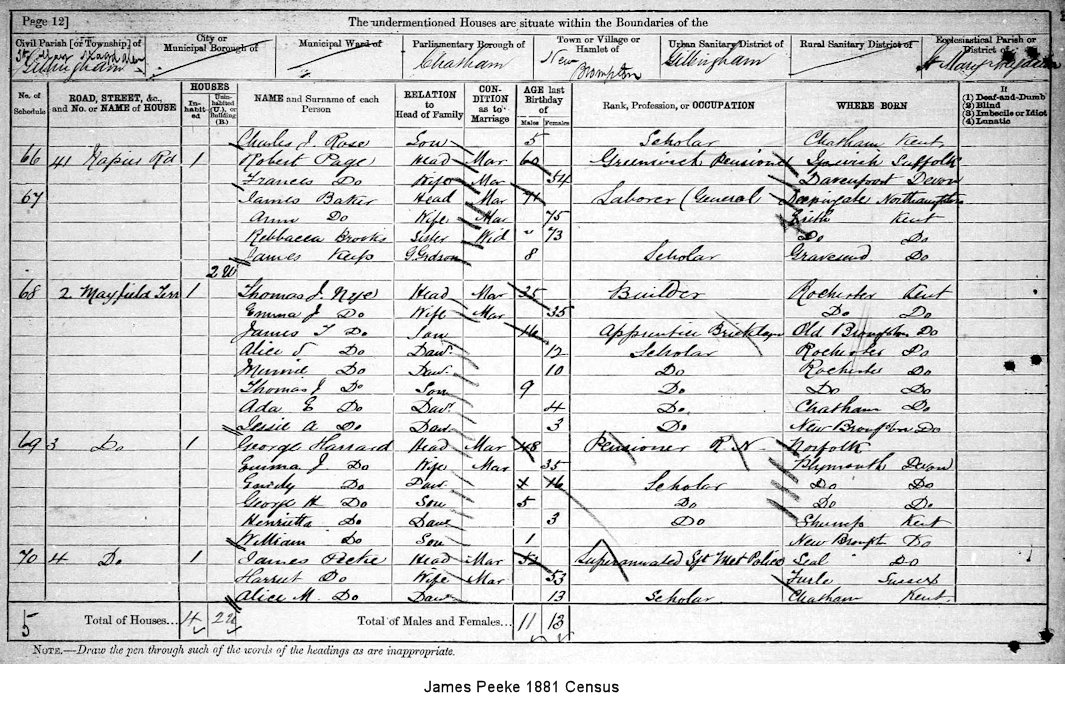 Page 12]
The undermentioned Houses are situate within the Boundaries of the
Civil Parish [or Township] of
City or Municipal Borough of
Municipal Ward of
Parliamentary Borough of
Town or Village or Hamlet of
Urban Sanitary District of
Rural Sanitary District of
Ecclesiastical Parish or District of
Gillingham
Chatham
New Brompton
Gillingham
St Mary Magdalen
No. of Schedule
ROAD, STREET, &c., and No. or NAME of HOUSE
HOUSES
Inhabited
Uninhabited (U.), or Building (B.)
NAME and Surname of each Person
RELATION to Head of Family
CONDITION as to Marriage
AGE last Birthday of
Males
Females
Rank, Profession, or OCCUPATION
WHERE BORN
If
(1) Deaf-and-Dumb
(2) Blind
(3) Imbecile or Idiot
(4) Lunatic
Charles J. Rose Son 5 Scholar Chatham Kent
66 41 Napier Rd 1 Robert Page Head Mar 60 Greenwich Pensioner Ipswich Suffolk
Frances Do Wife Mar 54 Davenport Devon
67 James Baker Head Mar 71 Laborer (General Northampton
Ann Do Wife Mar 75 Erith Kent
Rebbacca Brooks Sister Wid 73 Do Do
James 8 Scholar Gravesend Do
2 U
68 2 Mayfield Terr 1 Thomas J. Nye Head Mar 35 Builder Rochester Kent
Emma J Do Wife Mar 35 Do Do
James T Do Son 16 Apprentice Old Brompton Do
Alice S Do Daur 12 Scholar Rochester Do
Minnie Do Daur 10 Do Rochester Do
Thomas J Do Son 9 Do Do Do
Ada E Do Daur 4 Do Chatham Do
Jessie A Do Daur 3 Do New Brompton Do
69 3 Do 1 George Harrard Head Mar 48 Pensioner R N Norfolk
Emma J Do Wife Mar 35 Plymouth Devon
Do Daur 16 Scholar Do Do
George H Do Son 5 Do Do Do
Henrietta Do Daur 3 Do Kent
William Do Son 1 New Brompt Do
70 4 Do 1 James Peeke Head Mar Superannuated Sgt Met Police Seal Do
Harriet Do Wife Mar 53 Sussex
Alice M. Do Daur 13 Scholar Chatham Kent
5 Total of Houses... 4 2U Total of Males and Females... 11 13
NOTE.—Draw the pen through such of the words of the headings as are inappropriate.
James Peeke 1881 Census